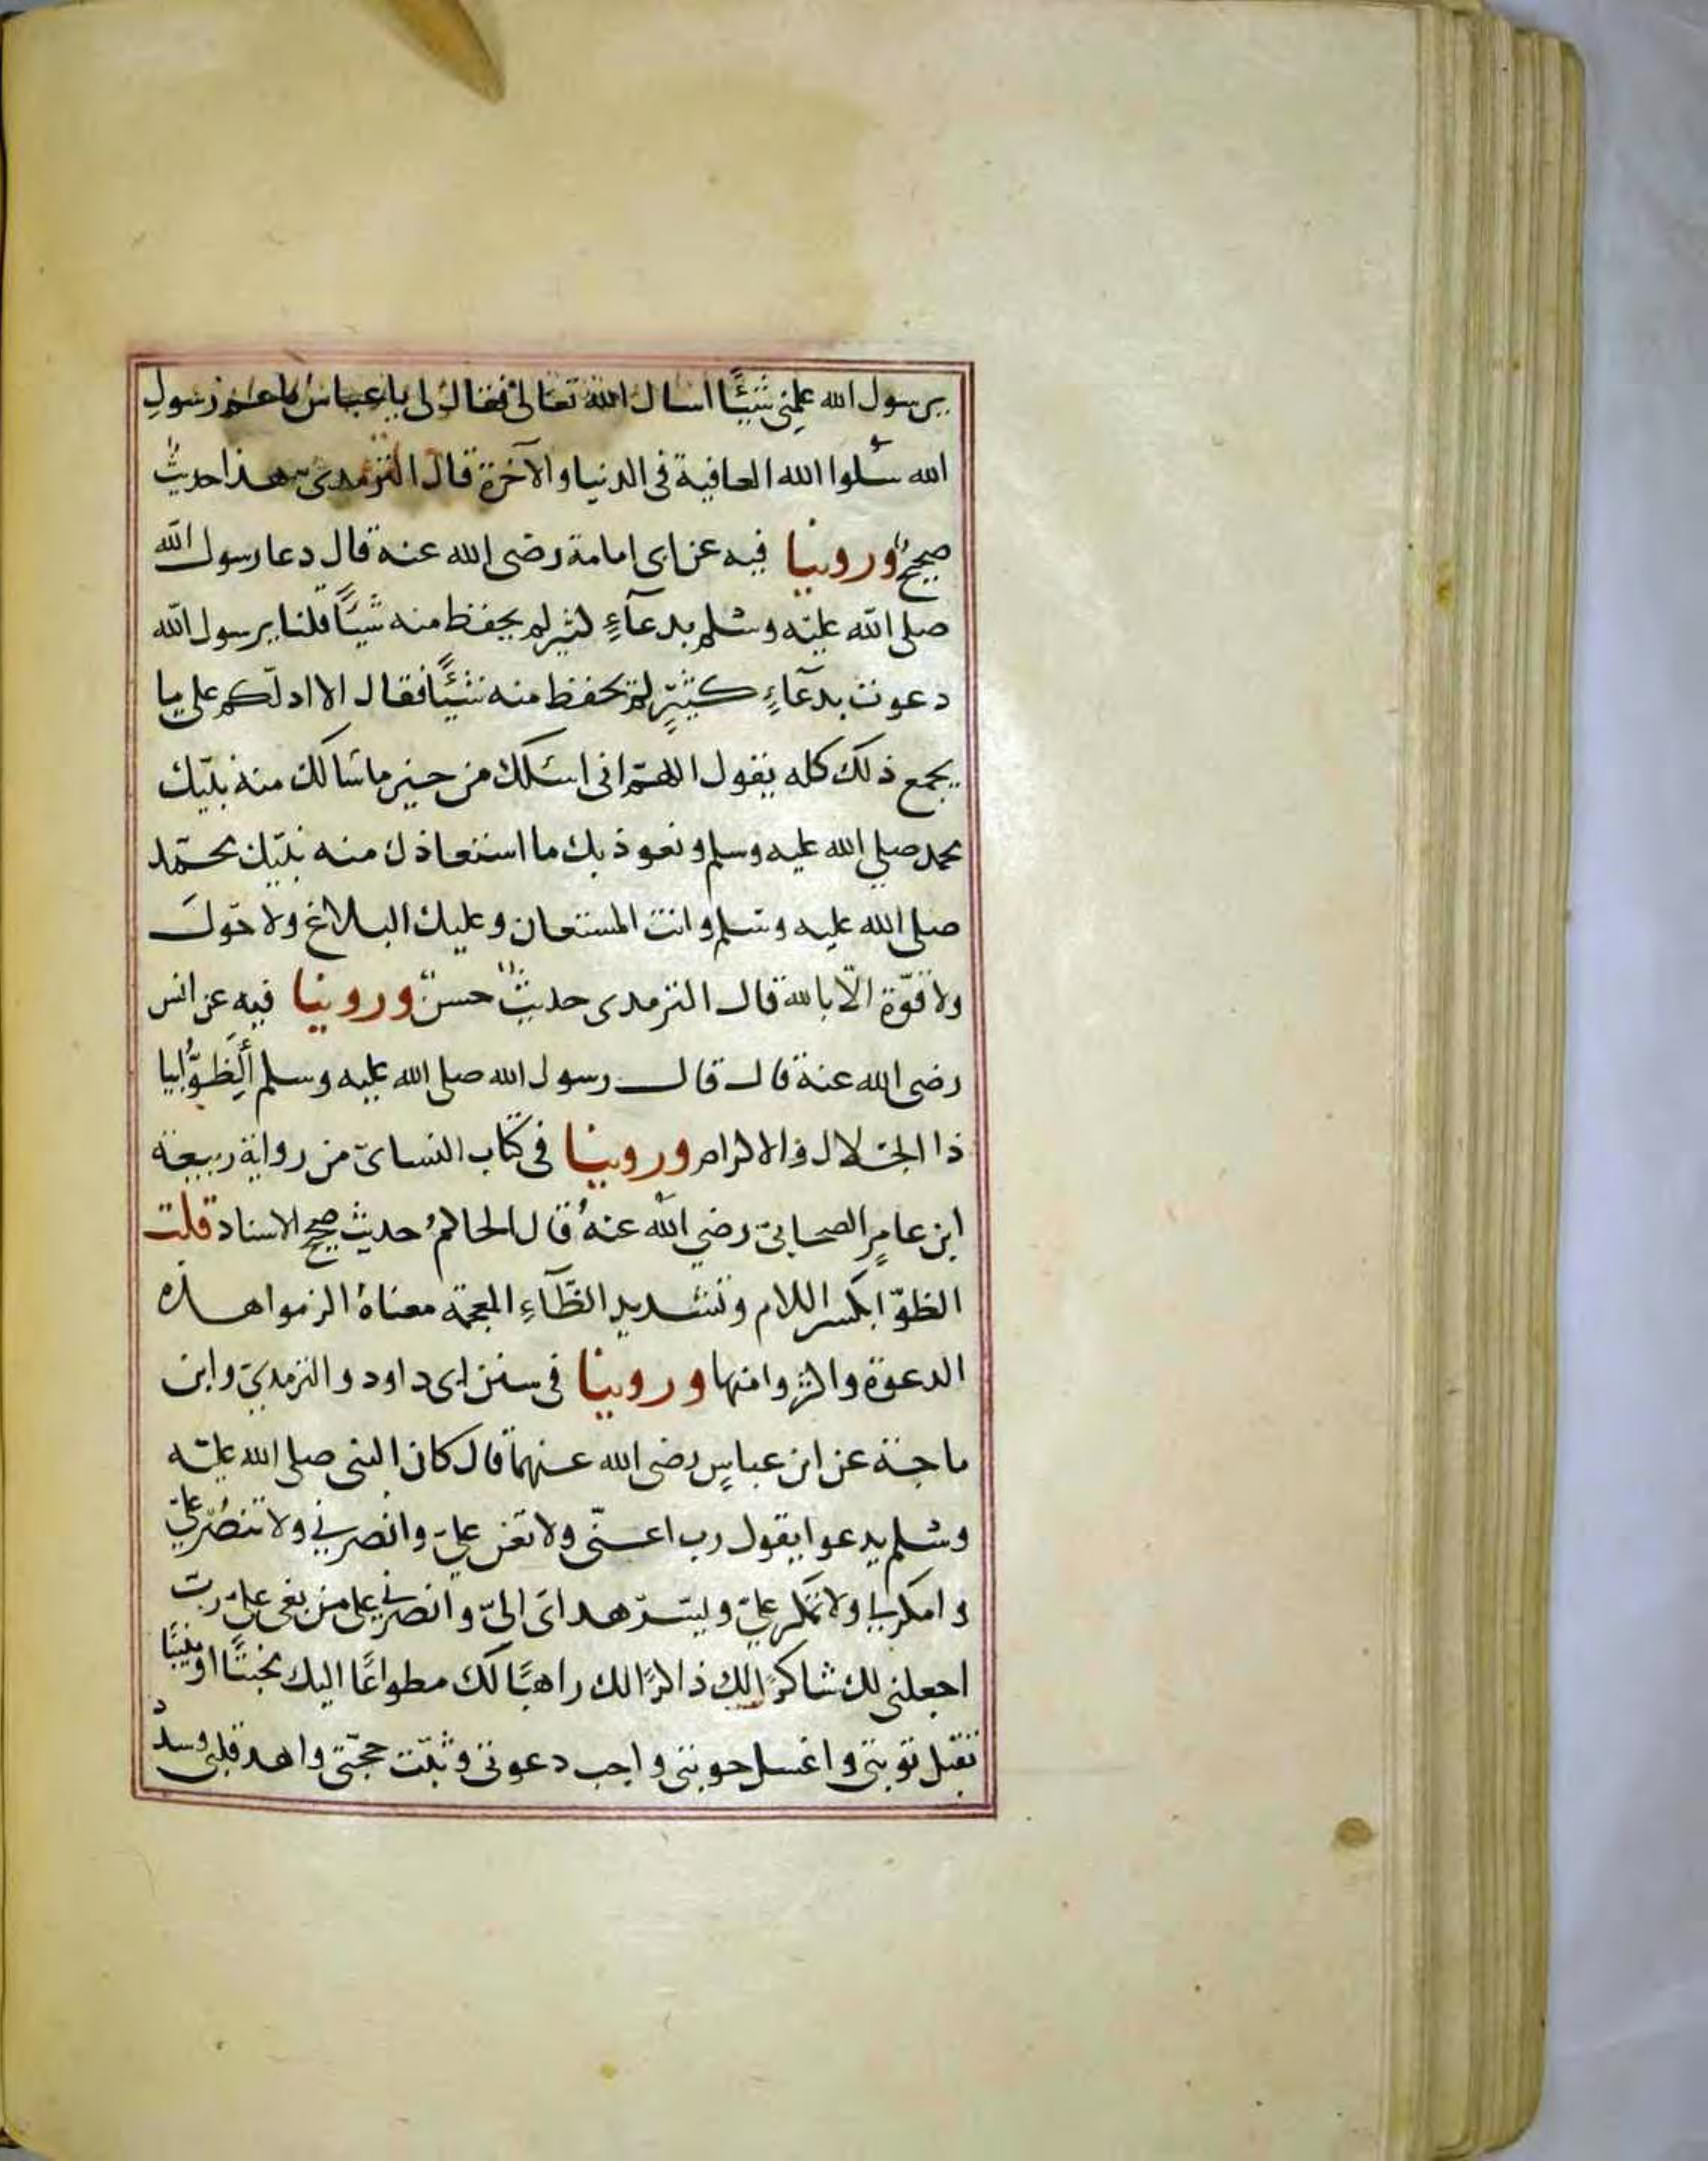 يرسول الله علمنى شيئًا اسال الله تعالى فقال لى يا عباس يا عم رسول
الله سلوا الله العافية فى الدنيا والآخرة قال الترمدى هذا حديث
صحيح وروينا فيه عن ابى امامة رضى الله عنه قال دعا رسول الله
صلى الله عليه وسلم بدعآءٍ كثير لم يحفظ منه شيئًا قلنا يرسول الله
دعوت بدعآءٍ كثيرٍ لم نحفظ منه شيئًا فقال الا ادلّكم على ما
يجمع ذلك كله يقول اللهمّ انى اسئلك من خير ما سالك منه نبيّك
محمد صلى الله عليه وسلم ونعوذ بك ما استعاذك منه نبيّك محمّد
صلى الله عليه وسلم وانت المستعان وعليك البلاغ ولا حول
ولا قوّة الّا بالله قال الترمدى حديث حسن وروينا فيه عن انس
رضى الله عنه قال قال رسول الله صلى الله عليه وسلم ألِظّوُّابيا
ذا الجلال والاكرام وروينا فى كتاب النساىّ من رواية ربيعة
ابن عامرٍ الصحابىّ رضي الله عنهُ قال الحاكمُ حديث صحيح الاسناد قلت
الظوّا بكسر اللام وتشديد الظّآءِ المعجمة معناهُ الزموا هذه
الدعوة واكثروا منها وروينا فى سنن ابى داود والترمديّ وابن
ماجة عن ابن عباسٍ رضى الله عنهما قال كان النبى صلى الله عليه
وسلم يدعوا يقول رب اعنّى ولا تعن علىّ وانصرني ولا تنصُر علىّ
وامكر لى ولا تمكر علىّ ويسّر هداى الىّ وانصرنى على من بغى علىّ ربّ
اجعلنى لك شاكرًا لك ذاكرًا لك راهبًا لك مطواعًا اليك مخبتًا او منيبًا
تقبّل توبتى واغسل حوبتى واجب دعوتى وثبّت حجّتى واهد قلبى وسدد